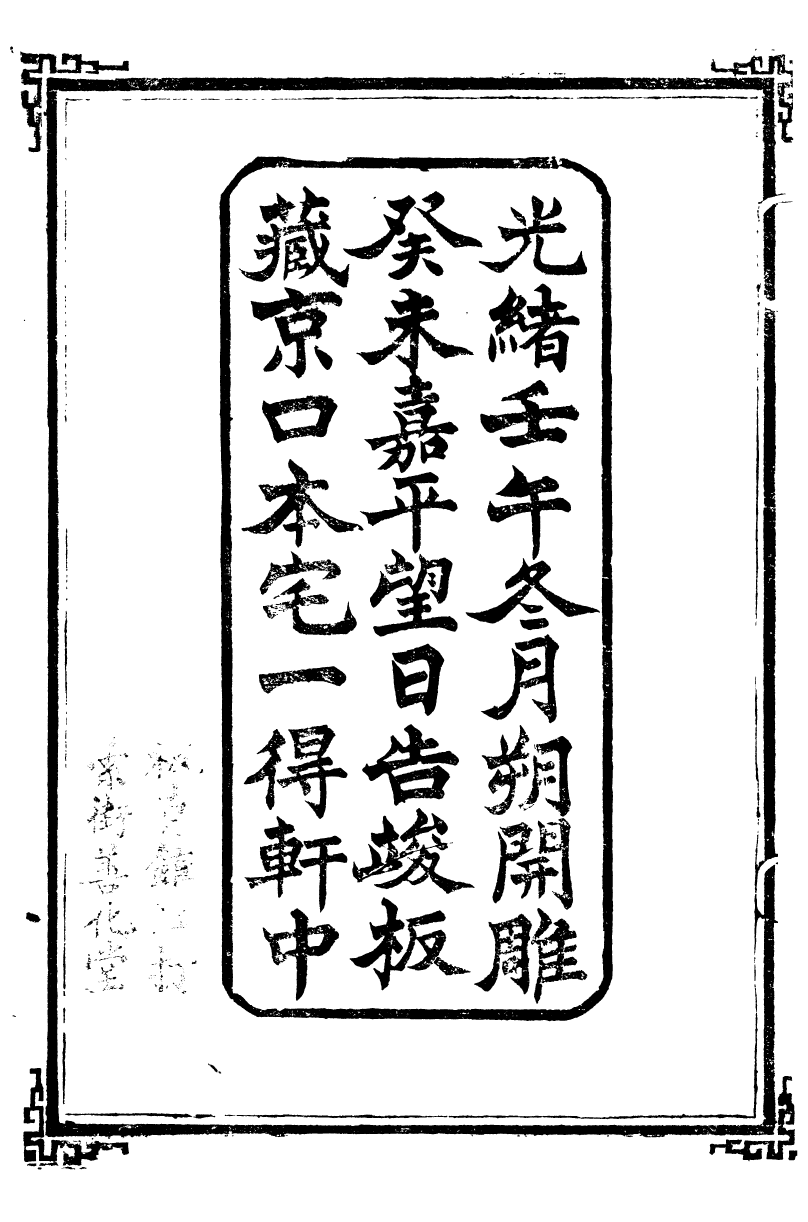 光緒壬午冬月朔開雕
癸未嘉平望日告竣板
藏京口本宅一得軒中
街善化堂